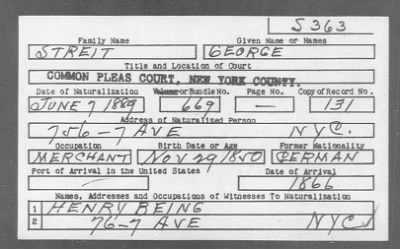 S 363
Family Name Given Name or Names
STREIT GEORGE
Title and Location of Court
COMMON PLEAS COURT, NEW YORK COUNTY.
Date of Naturalization Volume or Bundle No. Page No. Copy of Record No.
JUNE 7 1889 669 — 131
Address of Naturalized Person
756-7 AVE N.Y.C.
Occupation Birth Date or Age Former Nationality
MERCHANT NOV 29 1850 GERMAN
Port of Arrival in the United States Date of Arrival
1866
Names, Addresses and Occupations of Witnesses To Naturalization
1 HENRY BEING
2 76-7 AVE NYC